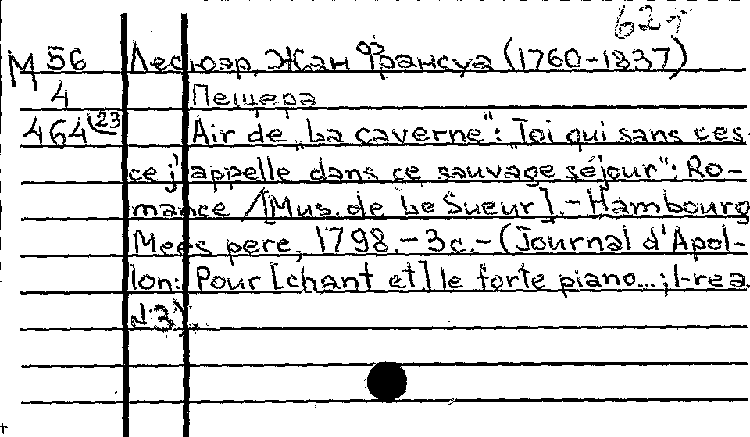 62т
М 56 Лесюэр, Жан Франсуа (1760-1837)
4 Пещера
464(23 Air de „La caverne": „Toi qui sans ces-
ce j'appelle dans ce sauvage séjour": Ro-
mance /[Mus. de Le Sueur].- Hambourg
Mees pere, 1798.-3c.-(Journal d'Apol-
lon: Pour [chant et] le forte piano...;
N 3).